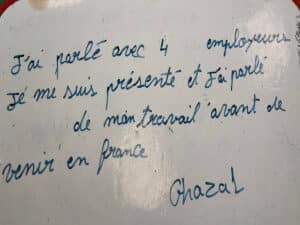 J'ai parlé avec 4 employeurs
Je me suis présenté et J'ai parlé
de mon travail avant de
venir en france
Ghazal